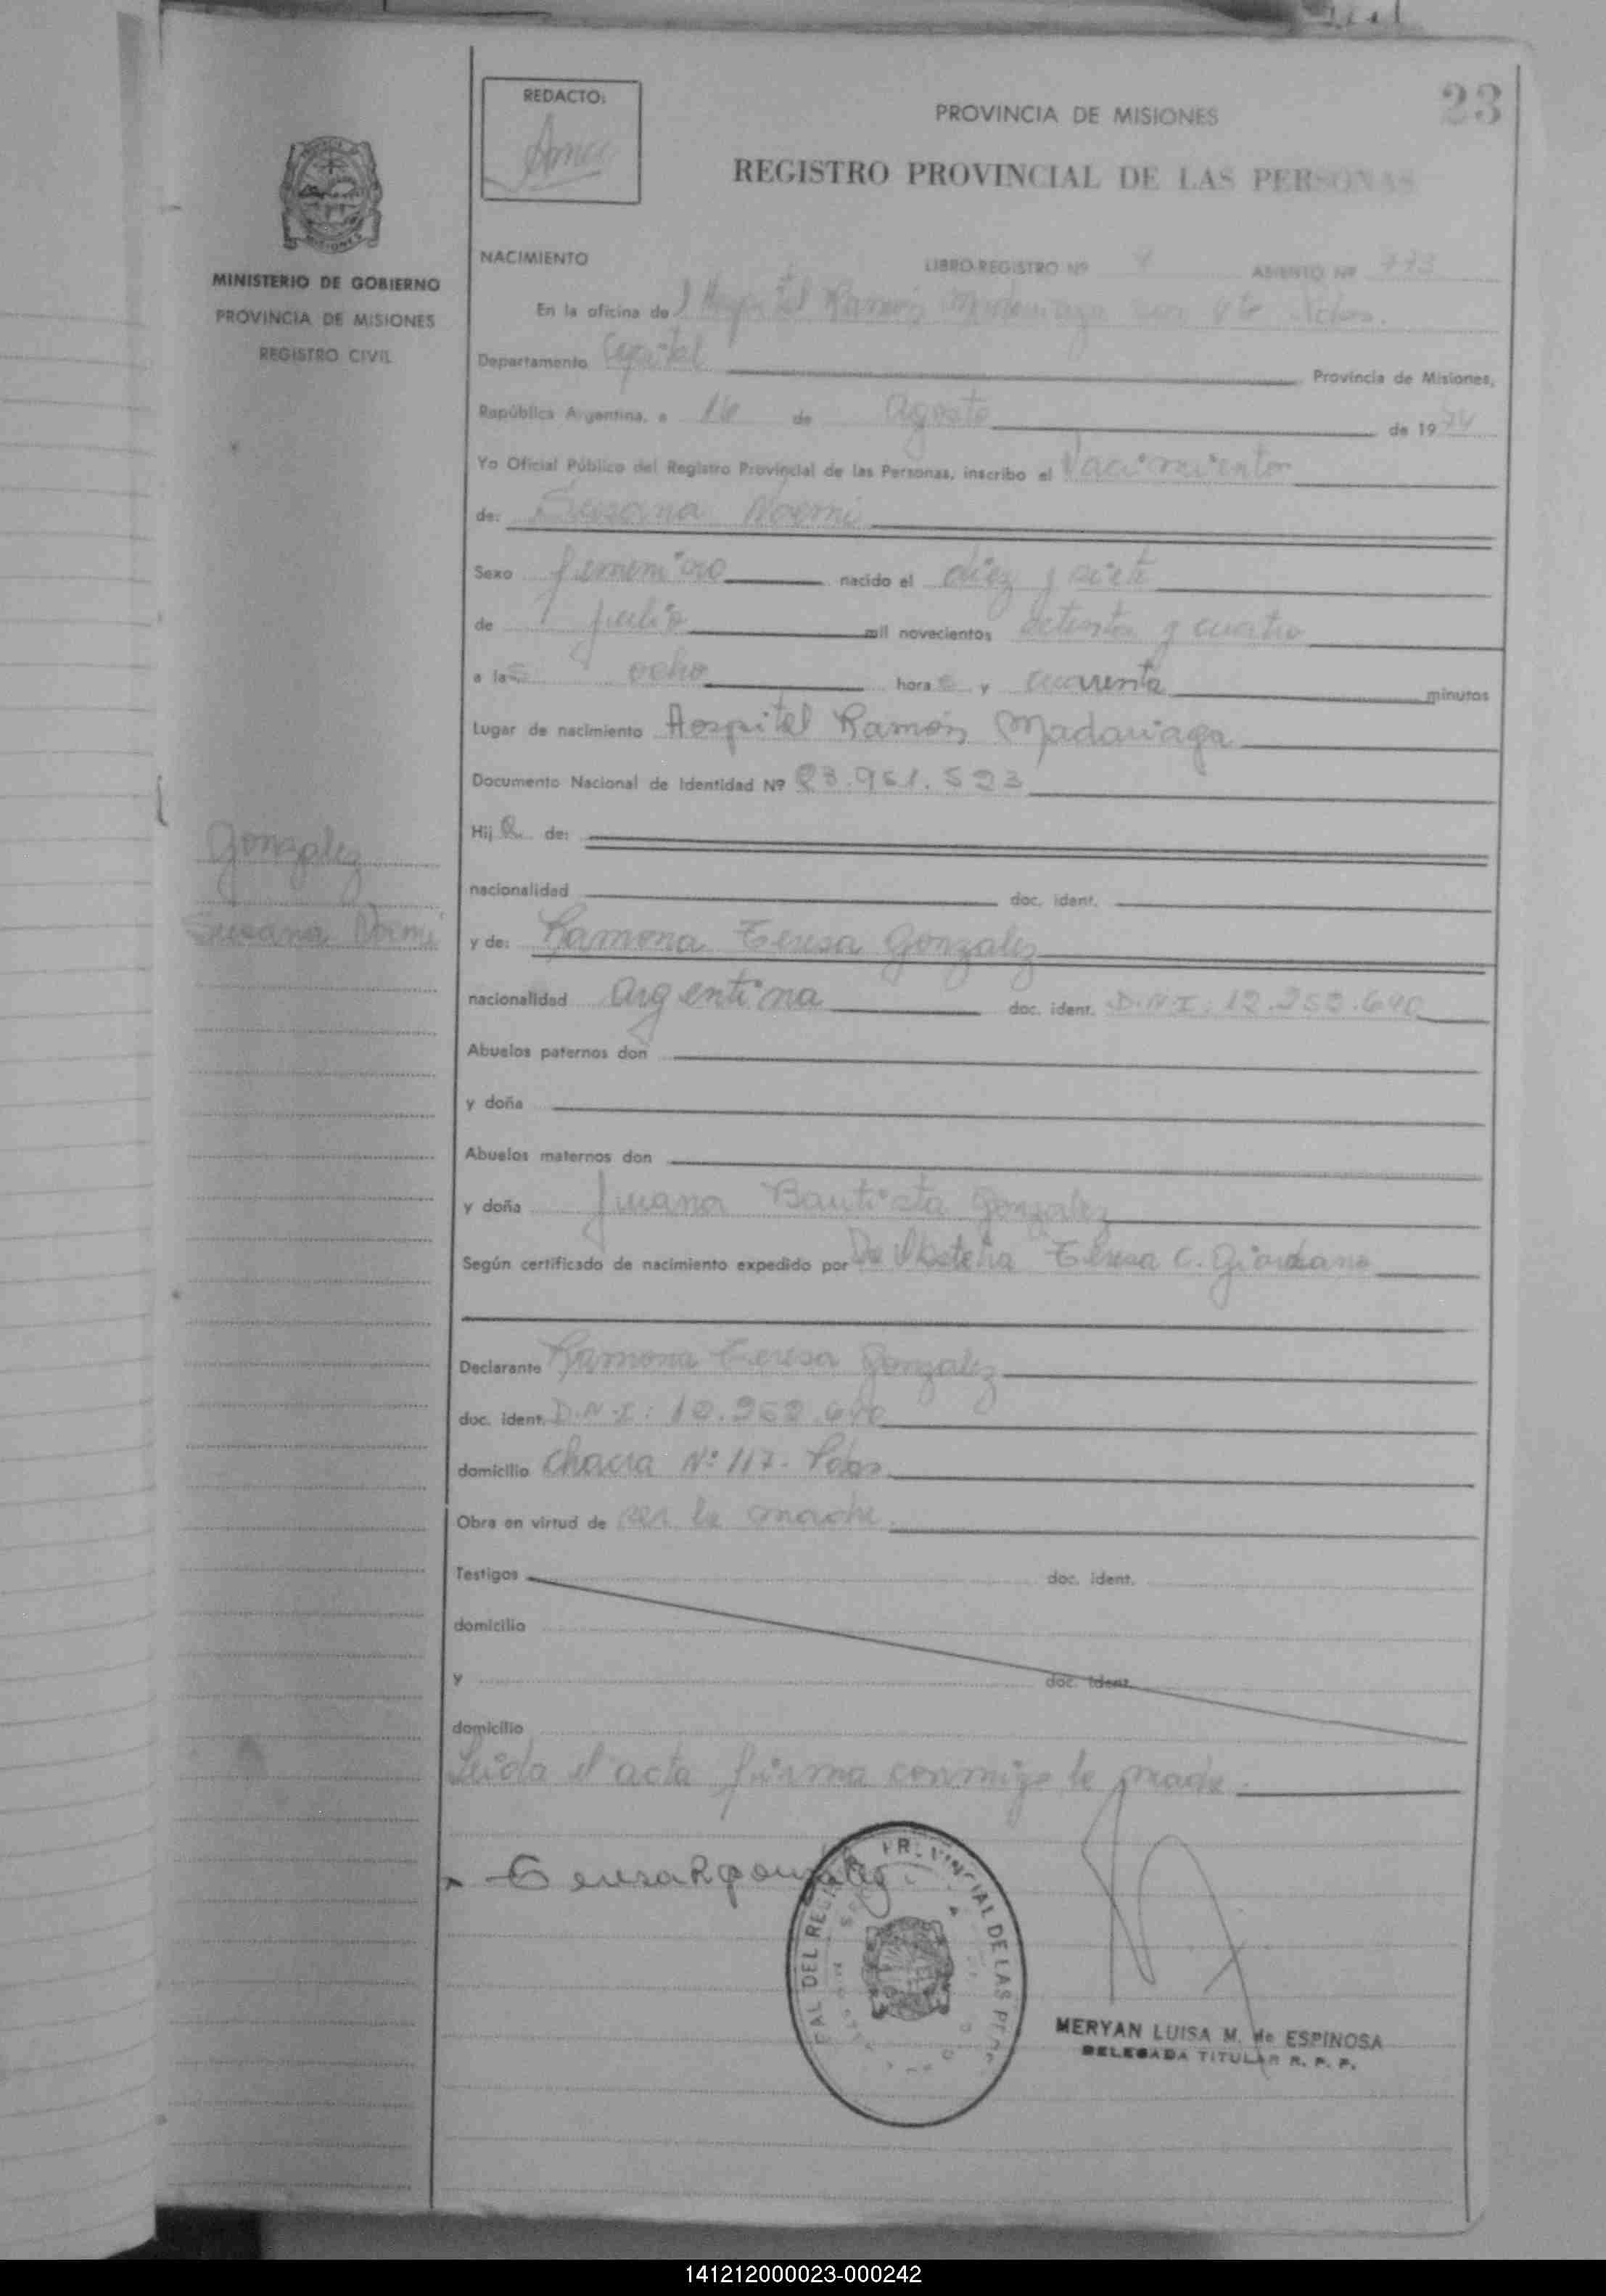 23
REDACTO:
PROVINCIA DE MISIONES
REGISTRO PROVINCIAL DE LAS PERSONAS
MINISTERIO DE GOBIERNO
PROVINCIA DE MISIONES
REGISTRO CIVIL
NACIMIENTO LIBRO-REGISTRO Nº ASIENTO Nº
En la oficina de l Hospital Ramón Madariaga
Departamento Capital Provincia de Misiones,
República Argentina, a 16 de Agosto de 1974
Yo Oficial Público del Registro Provincial de las Personas, inscribo el Nacimiento
de: Susana Noemi
Sexo femenino nacido el diez y siete
de julio mil novecientos setenta y cuatro
a las ocho horas y cuarenta minutos
Lugar de nacimiento Hospital Ramón Madariaga
Documento Nacional de Identidad Nº 23.951.523
Hija de:
Gonzalez
Susana Noemi
nacionalidad doc. ident.
y de: Ramona Teresa Gonzalez
nacionalidad argentina doc. ident. D.N.I: 12.252.640
Abuelos paternos don
y doña
Abuelos maternos don
y doña Juana Bautista Gonzalez
Según certificado de nacimiento expedido por Teresa C. Giordano
Declarante Ramona Teresa Gonzalez
doc. ident. D.N.I: 12.252.640
domicilio Chacra Nº 117. Pdas
Obra en virtud de ser la madre.
Testigos doc. ident.
domicilio
y doc. ident.
domicilio
Leida el acta firma conmigo la madre.
Teresa R gonzalez
DEL REGISTRO PROVINCIAL DE LAS PERS
MERYAN LUISA M. de ESPINOSA
DELEGADA TITULAR R. P. P.
141212000023-000242